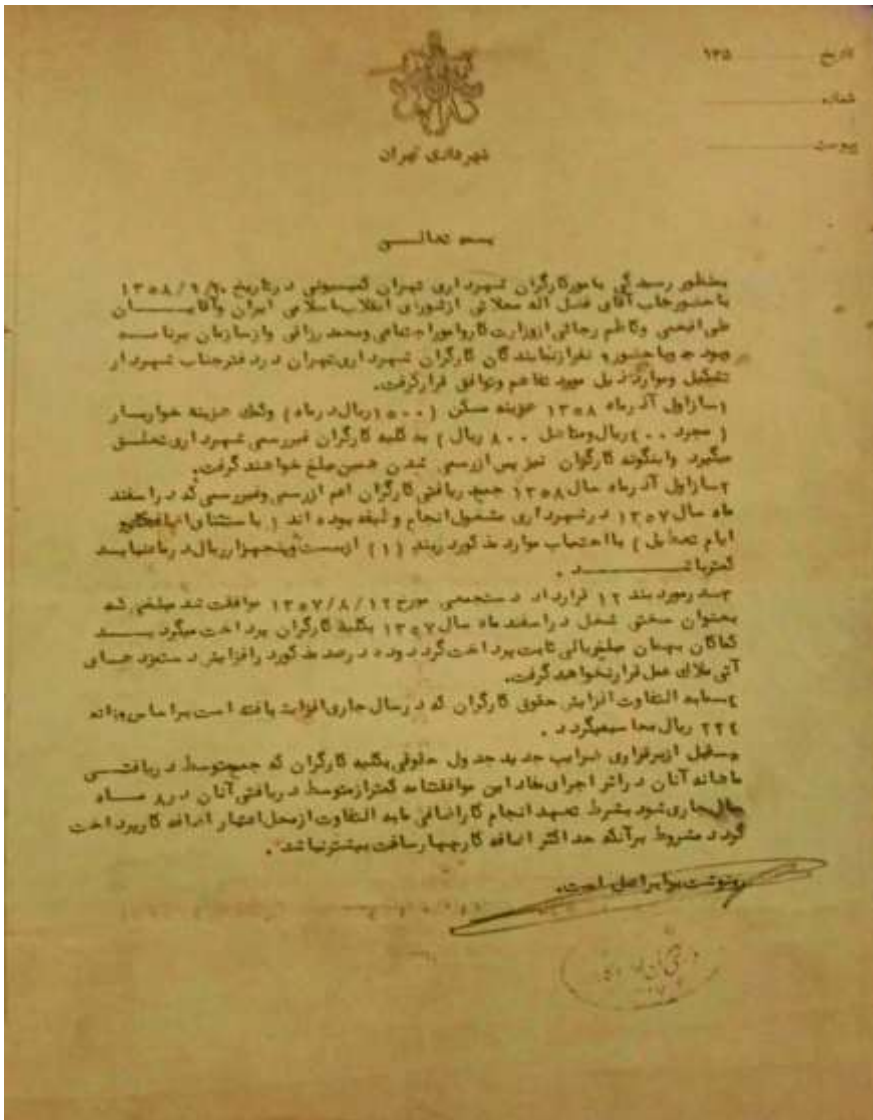 تاریخ ۹۳۵
شماره
پیوست
شهرداری تهران
بسمه تعالی
بمنظور رسیدگی بامورکارگران شهرداری تهران کمیسیونی درتاریخ ۱۳۵۸/۹/۲۰
باحضورجناب آقای فضل اله محلاتی ازشورای انقلاب اسلامی ایران وآقایان
علی افخمی وکاظم رجائی ازوزارت کارواموراجتماعی ومحمد رزاقی وازسازمان برنامه
وبودجه وباحضور نفرازنمایندگان کارگران شهرداری تهران دردفترجناب شهردار
تشکیل ومواردذیل مورد تفاهم وتوافق قرارگرفت.
۱ـازاول آذرماه ۱۳۵۸ هزینه مسکن (۱۵۰۰ریال درماه) وکمک هزینه خواربار
(مجرد ۴۰۰ ریال ومتاهل ۸۰۰ ریال) به کلیه کارگران غیررسمی شهرداری تعلق
میگیرد واینگونه کارگران نیز پس ازرسمی شدن همین مبلغ خواهند گرفت.
۲ـازاول آذرماه سال ۱۳۵۸ جمع دریافتی کارگران اعم ازرسمی وغیررسمی که دراسفند
ماه سال ۱۳۵۷ درشهرداری مشغول انجام وظیفه بوده اند (باستثنای
ایام تعطیل) بااحتساب موارد مذکوردربند (۱) ازبیست وپنجهزارریال درماه نباید
کمترباشد.
۳ـدرمورد بند ۱۲ قرارداد دستجمعی مورخ ۱۳۵۷/۸/۱۲ موافقت شد مبلغی که
بعنوان سختی شغل دراسفند ماه سال ۱۳۵۷ بکلیه کارگران پرداخت میگردید
کماکان بهمان مبلغ ریالی ثابت پرداخت گردد وده درصد مذکور درافزایش دستمزد های
آتی ملاک عمل قرارنخواهد گرفت.
٤ـمابه التفاوت افزایش حقوق کارگران که درسال جاری افزایش یافته است براساس روزانه
۲۲٤ ریال محاسبه میگردد.
۵ـقبل ازبرقراری ضرایب جدید جدول حقوقی بکلیه کارگران که جمع متوسط دریافتی
ماهانه آنان دراثر اجرای مفاد این موافقتنامه کمترازمتوسط دریافتی آنان در ۸ ماه
سال جاری شود بشرط تعهد انجام کاراضافی مابه التفاوت ازمحل اعتبار اضافه کارپرداخت
گردد مشروط برآنکه حداکثر اضافه کارچهارساعت بیشترنباشد.
رونوشت برابراصل است.